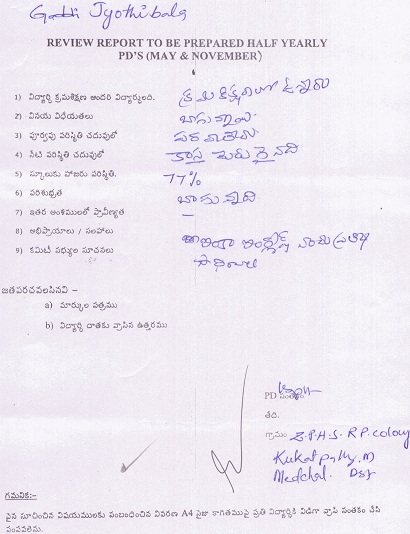 Gaddi Jyothibala
REVIEW REPORT TO BE PREPARED HALF YEARLY
PD'S (MAY & NOVEMBER)
1) విద్యార్ధి క్రమశిక్షణ అందరి విద్యార్ధులది. క్రమశిక్షణలో ఉన్నారు
2) వినయ విధేయతలు బాగున్నాయి
3) పూర్వపు పరిస్థితి చదువులో
4) నేటి పరిస్థితి చదువులో కాస్త మెరుగైనది
5) స్కూలుకు హాజరు పరిస్థితి. 77%
6) పరిశుభ్రత బాగున్నది
7) ఇతర అంశములలో ప్రావీణ్యత –
8) అభిప్రాయాలు / సలహాలు
9) కమిటీ సభ్యుల సూచనలు
జతపరచవలసినవి –
a) మార్కుల పత్రము
b) విద్యార్ధి దాతకు వ్రాసిన ఉత్తరము
PD సంతకం
తేది.
గ్రామం Z.P.H.S. R.P. colony
Kukatpally. M
Medchal. Dst
గమనిక:-
పైన సూచించిన విషయములకు సంబంధించిన వివరణ A4 సైజు కాగితముపై ప్రతి విద్యార్ధికి విడిగా వ్రాసి సంతకం చేసి
పంపవలెను.